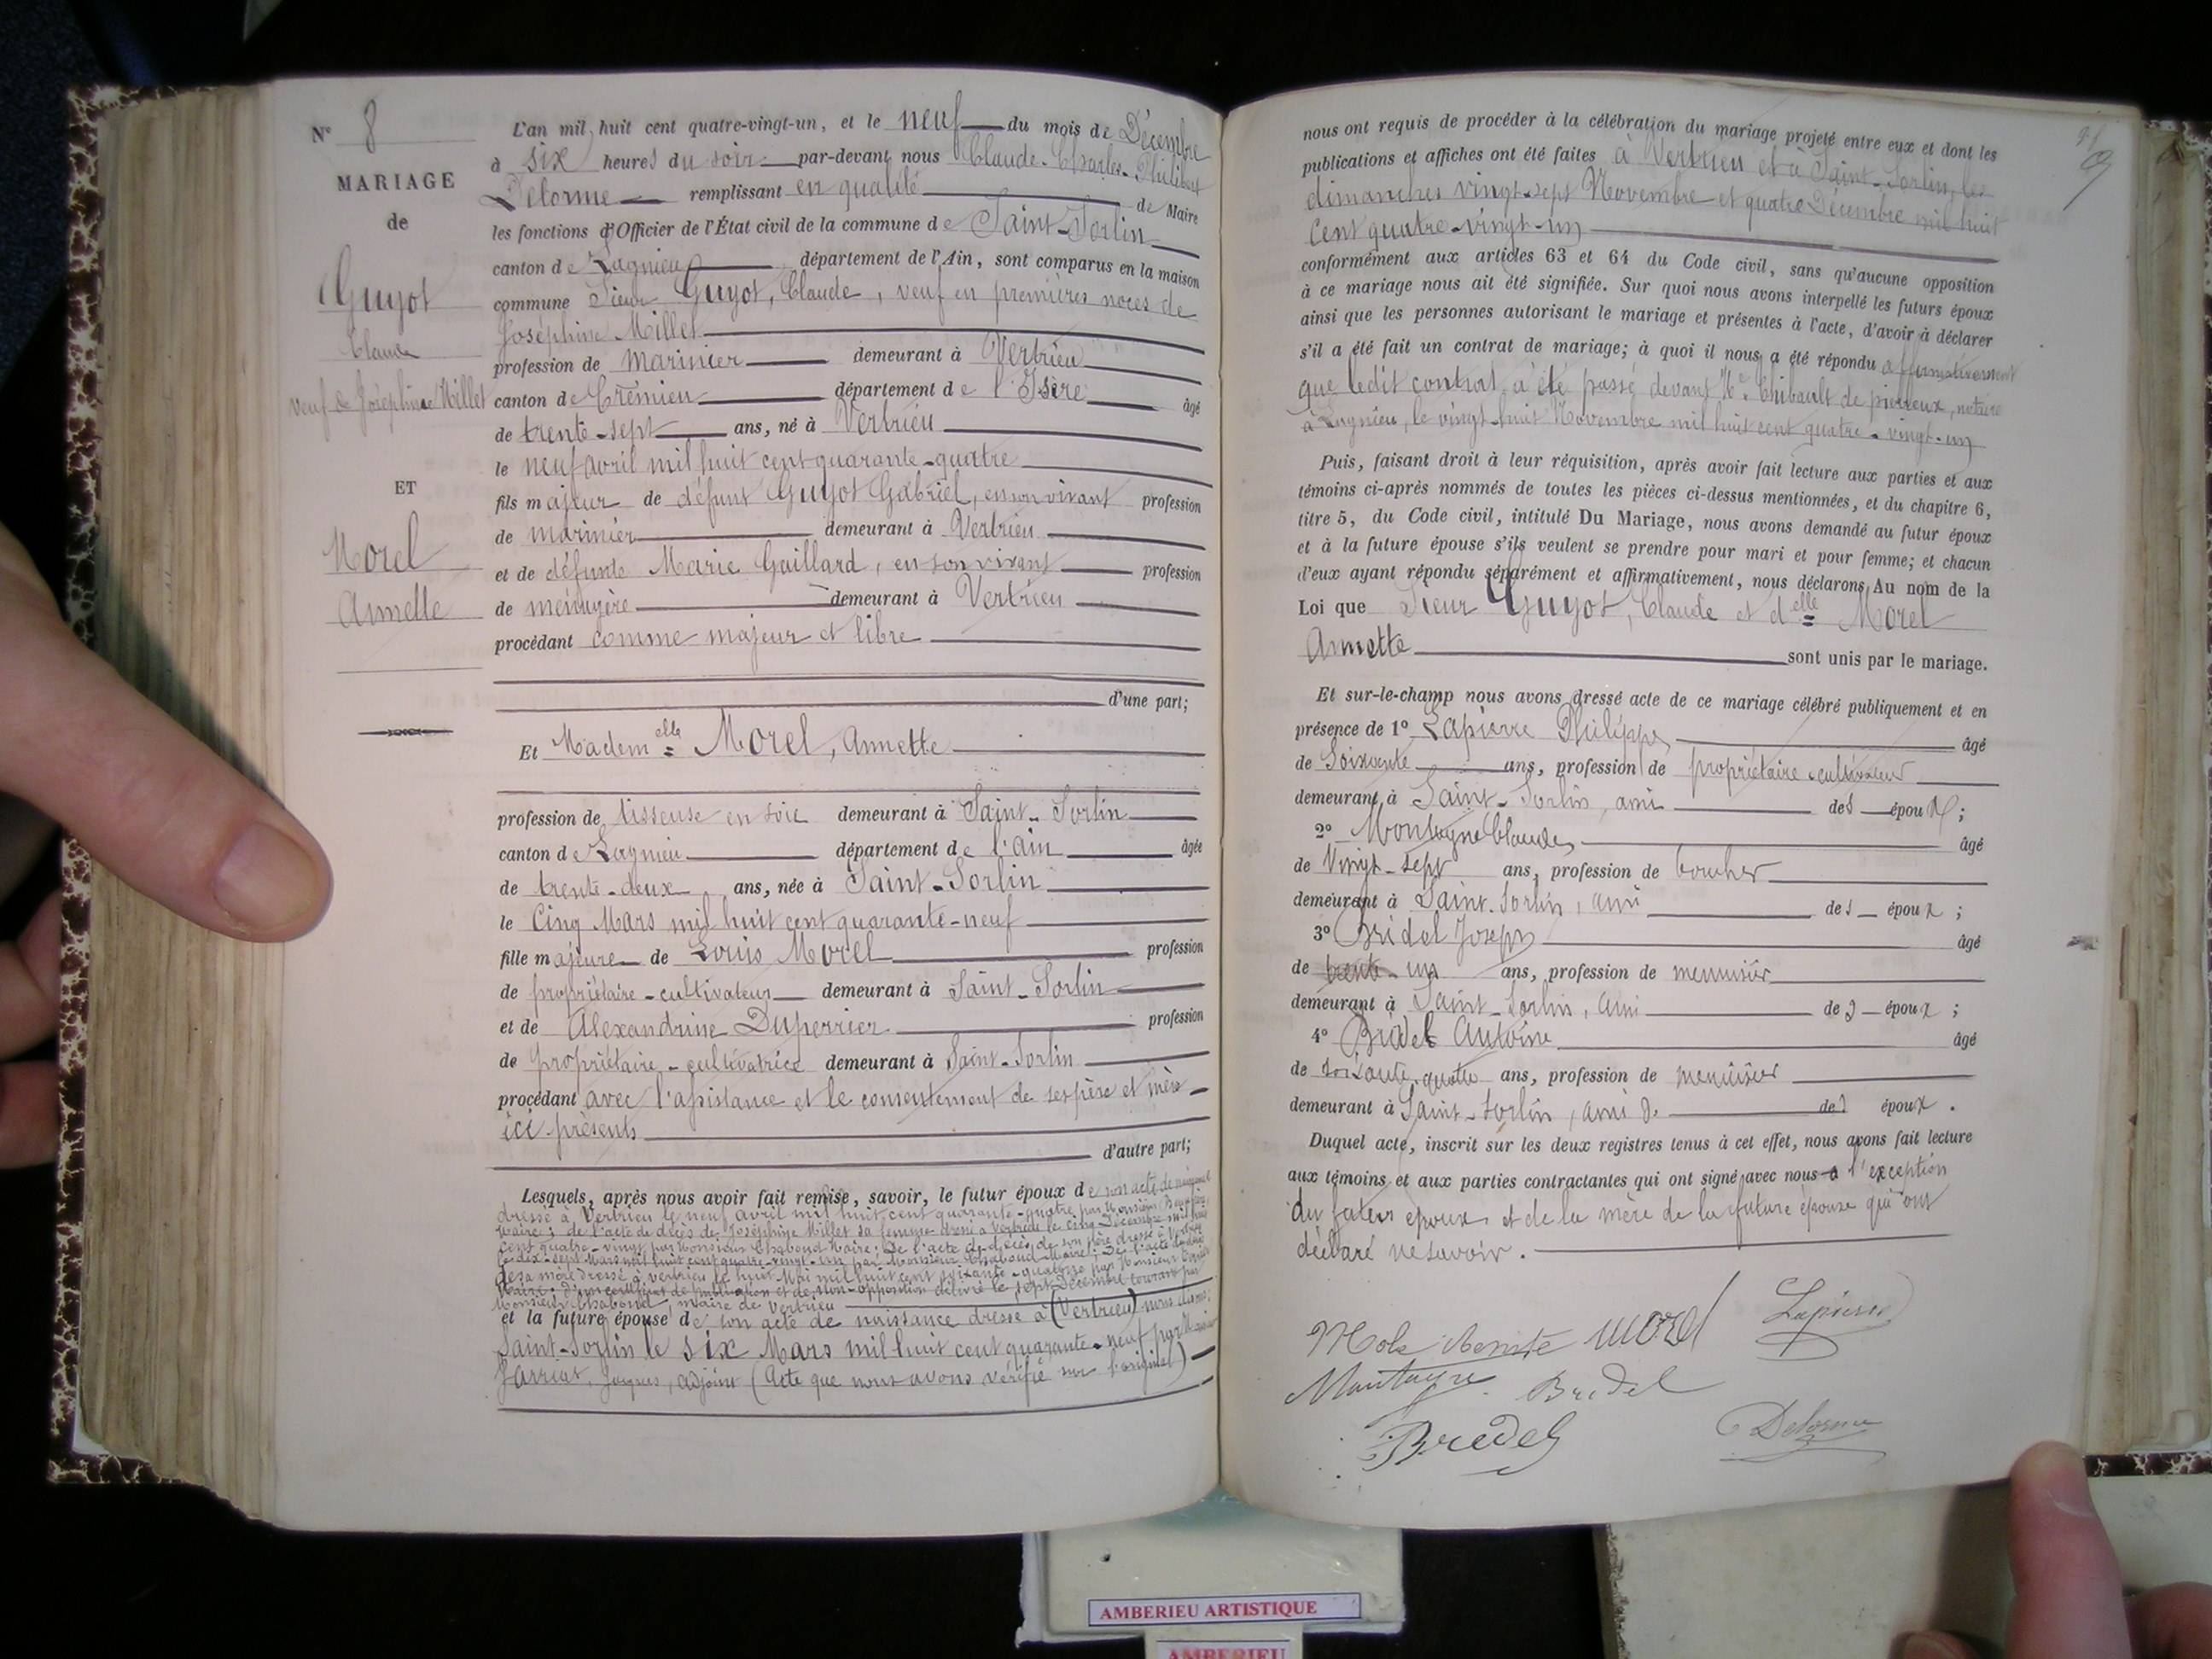 N° 8
MARIAGE
de
Guyot
Claude
veuf de Joséphine Millet
ET
Morel
Annette
L'an mil huit cent quatre-vingt-un, et le neuf du mois de Décembre
à six heures du soir par-devant nous Claude-Charles-Philibert
Delorme remplissant en qualité de Maire
les fonctions d'Officier de l'État civil de la commune de Saint-Sorlin
canton de Lagnieu département de l'Ain, sont comparus en la maison
commune Sieur Guyot, Claude, veuf en premières noces de
Joséphine Millet
profession de marinier demeurant à Vertrieu
canton de Crémieu département de l'Isère âgé
de trente-sept ans, né à Vertrieu
le neuf avril mil huit cent quarante-quatre
fils majeur de défunt Guyot Gabriel, en son vivant profession
de marinier demeurant à Vertrieu
et de défunte Marie Gaillard, en son vivant profession
de ménagère demeurant à Vertrieu
procédant comme majeur et libre
d'une part;
Et Madem elle Morel, Annette
profession de tisseuse en soie demeurant à Saint-Sorlin
canton de Lagnieu département de l'ain âgée
de trente-deux ans, née à Saint-Sorlin
le Cinq Mars mil huit cent quarante-neuf
fille majeure de Louis Morel profession
de propriétaire-cultivateur demeurant à Saint-Sorlin
et de Alexandrine Duperrier profession
de propriétaire-cultivatrice demeurant à Saint-Sorlin
procédant avec l'assistance et le consentement de ses père et mère
ici présents
d'autre part;
Lesquels, après nous avoir fait remise, savoir, le futur époux de son acte de naissance
dressé à Vertrieu le neuf avril mil huit cent quarante-quatre par Monsieur
Maire; de l'acte de décès de Joséphine Millet sa femme dressé à Vertrieu le cinq Décembre mil huit
cent quatre-vingt par Monsieur Chabond Maire; de l'acte de décès de son père dressé à Vertrieu
le dix-sept Mars mil huit cent quatre-vingt-un par Monsieur Chabond Maire; de l'acte de décès
de sa mère dressé à Vertrieu le huit Mai mil huit cent soixante-quatorze par Monsieur
Maire; d'un certificat de publication et de non-opposition délivré le sept Décembre courant par
Monsieur Chabond, maire de Vertrieu
et la future épouse de son acte de naissance dressé à (Vertrieu) nous disons:
Saint-Sorlin le six Mars mil huit cent quarante-neuf par
Jarriat, Jacques, adjoint (Acte que nous avons vérifié sur l'original)
nous ont requis de procéder à la célébration du mariage projeté entre eux et dont les
publications et affiches ont été faites à Vertrieu et à Saint-Sorlin, les
dimanches vingt-sept Novembre et quatre Décembre mil huit
cent quatre-vingt-un
conformément aux articles 63 et 64 du Code civil, sans qu'aucune opposition
à ce mariage nous ait été signifiée. Sur quoi nous avons interpellé les futurs époux
ainsi que les personnes autorisant le mariage et présentes à l'acte, d'avoir à déclarer
s'il a été fait un contrat de mariage; à quoi il nous a été répondu affirmativement
que ledit contrat a été passé devant Me Thibault de pierreux, notaire
à Lagnieu, le vingt-huit Novembre mil huit cent quatre-vingt-un
Puis, faisant droit à leur réquisition, après avoir fait lecture aux parties et aux
témoins ci-après nommés de toutes les pièces ci-dessus mentionnées, et du chapitre 6,
titre 5, du Code civil, intitulé Du Mariage, nous avons demandé au futur époux
et à la future épouse s'ils veulent se prendre pour mari et pour femme; et chacun
d'eux ayant répondu séparément et affirmativement, nous déclarons Au nom de la
Loi que Sieur Guyot, Claude et d elle Morel
Annette sont unis par le mariage.
Et sur-le-champ nous avons dressé acte de ce mariage célébré publiquement et en
présence de 1° Lapierre Philippe âgé
de Soixante ans, profession de propriétaire-cultivateur
demeurant à Saint-Sorlin, ami des époux;
2° Montagne Claude âgé
de Vingt-sept ans, profession de boucher
demeurant à Saint-Sorlin, ami des époux;
3° Bridel Joseph âgé
de trente-un ans, profession de menuisier
demeurant à Saint-Sorlin, ami des époux;
4° Bridel Antoine âgé
de soixante-quatre ans, profession de menuisier
demeurant à Saint-Sorlin, ami des époux.
Duquel acte, inscrit sur les deux registres tenus à cet effet, nous avons fait lecture
aux témoins et aux parties contractantes qui ont signé avec nous a l'exception
du futur époux et de la mère de la future épouse qui ont
déclaré ne savoir.
morel Lapierre
Montagne Bridel
Bridel Delorme
AMBERIEU ARTISTIQUE
AMBERIEU